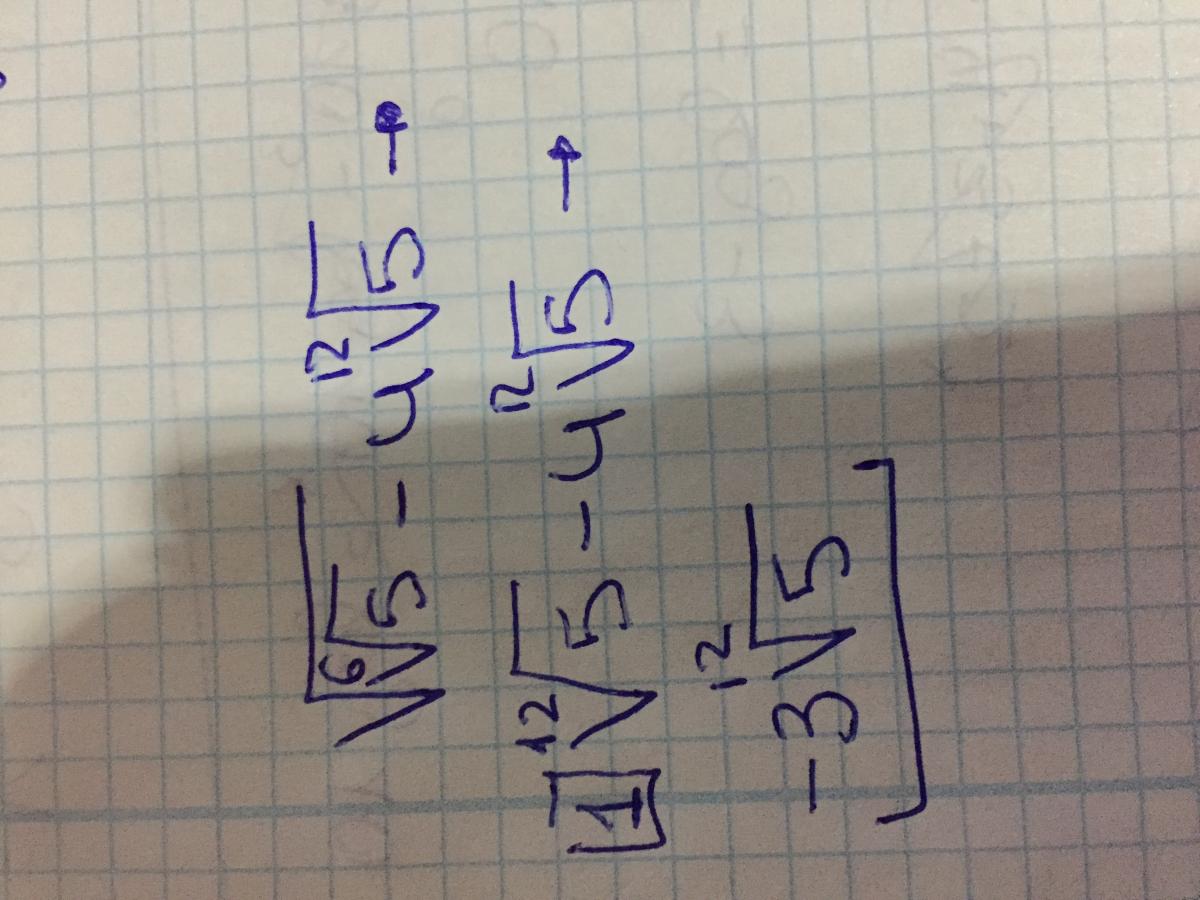 √(⁶√5) - 4 ¹²√5 →
1 ¹²√5 - 4 ¹²√5 →
-3 ¹²√5